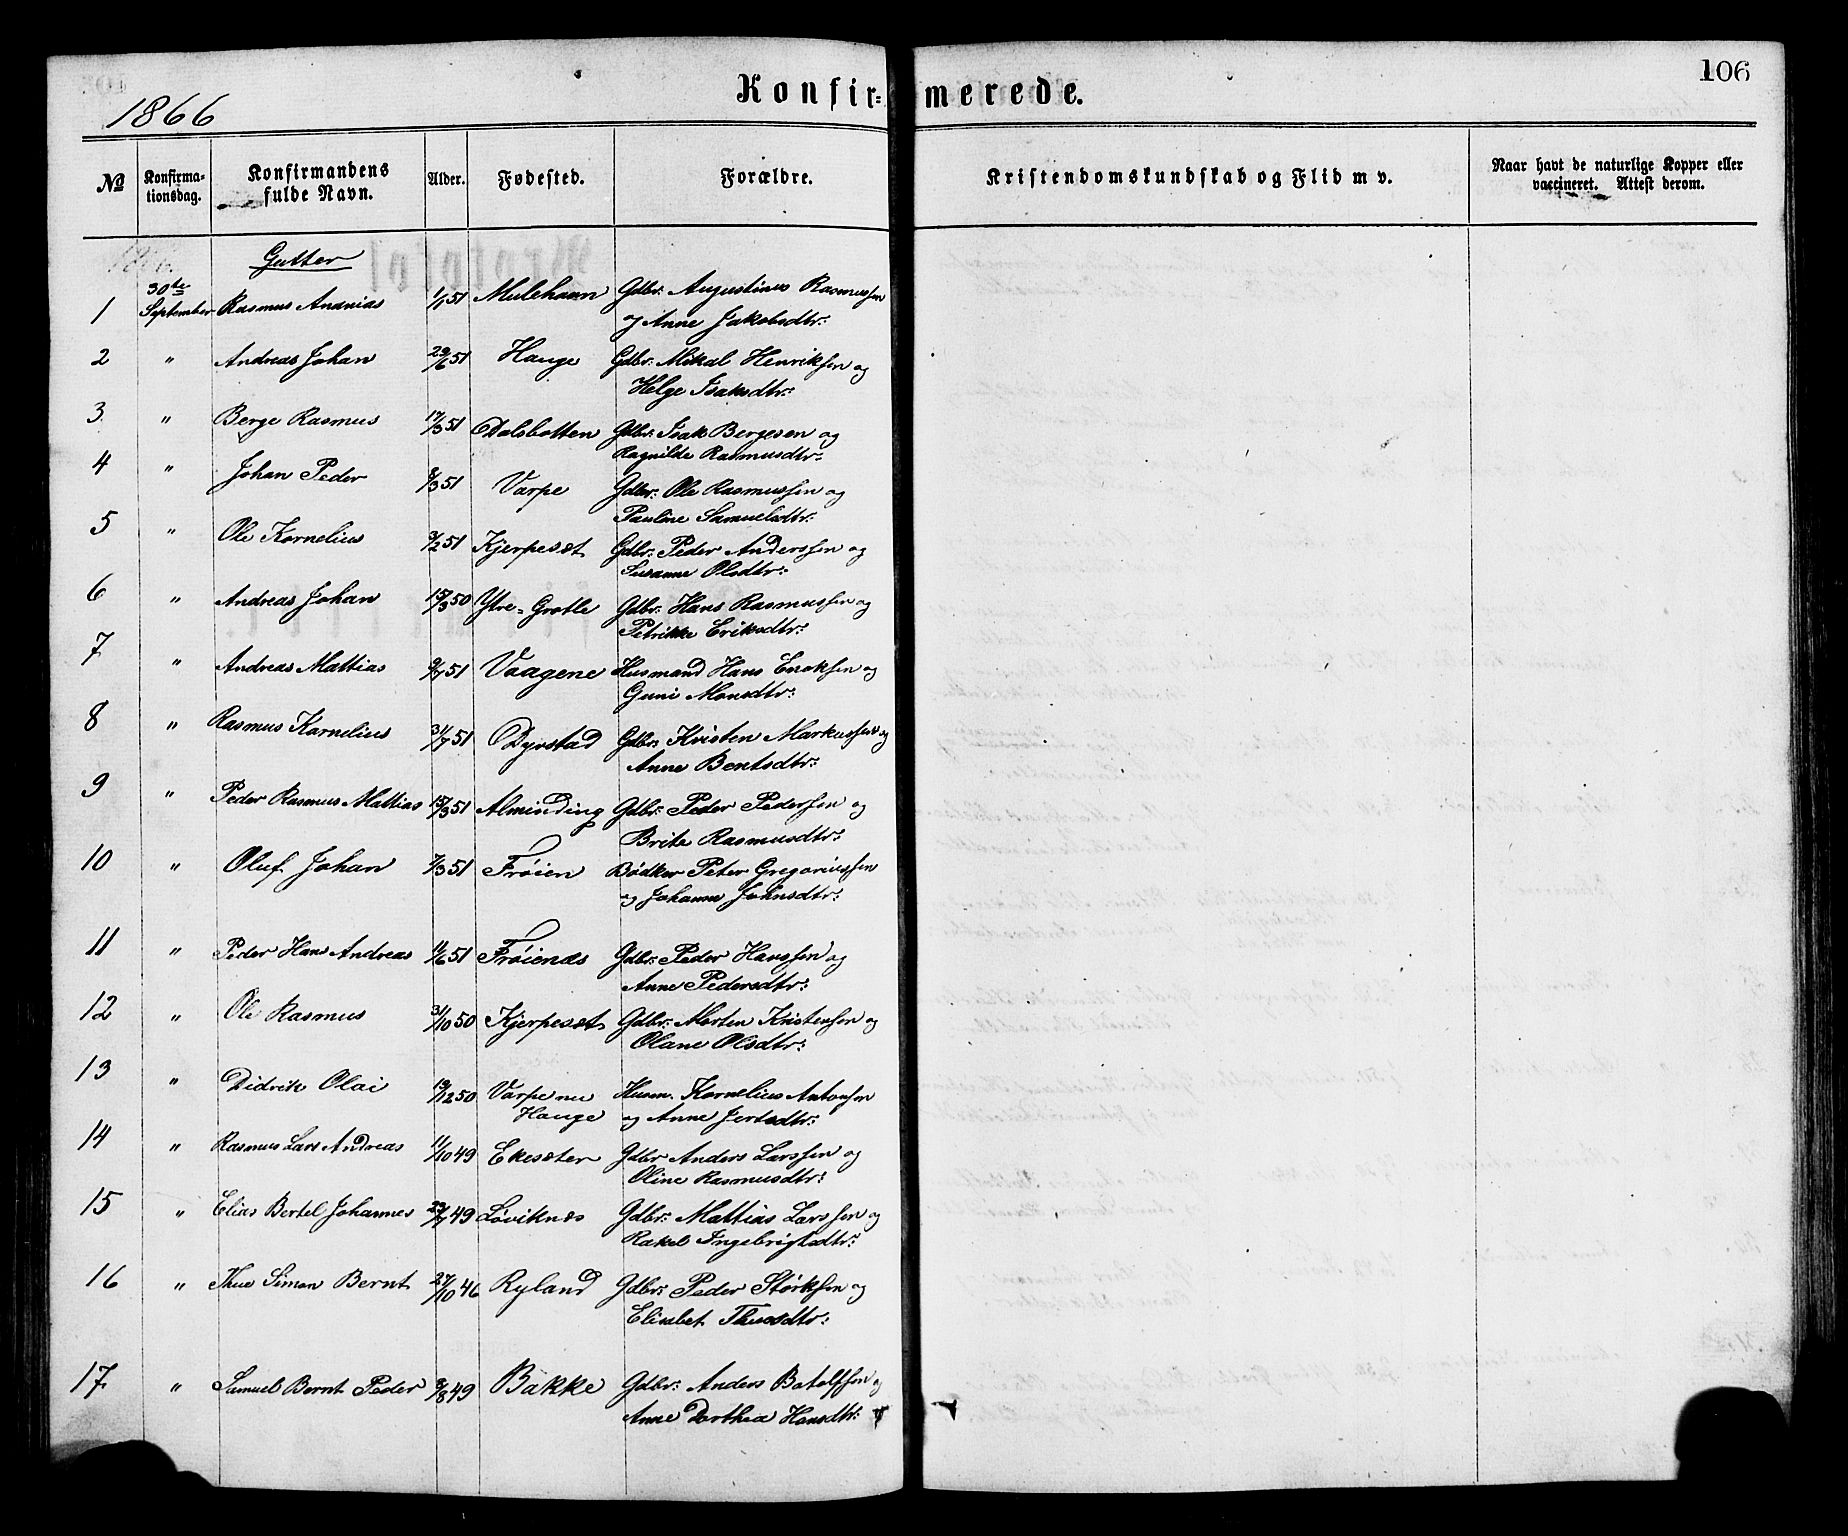 106
1866
Konfir= merede.
No Konfirma-tionsdag. Konfirmandens fulde Navn. Alder. Fødested. Forældre. Kristendomskundskab og Flid m v. Naar havt de naturlige Kopper eller vaccineret. Attest derom.
Gutter
1 30te September Rasmus Ananias 1/1 51 Mulehavn Gdbr: Augustinus Rasmussen
og Anne Jakobsdtr:
2 " Andreas Johan 29/6 51 Hauge Gdbr: Mikal Henriksen og
Helge Isaksdtr:
3 " Berge Rasmus 17/3 51 Dalsbotten Gdbr: Isak Bergesen og
Ragnilde Rasmusdtr:
4 " Johan Peder 8/3 51 Varpe Gdbr: Ole Rasmussen og
Pauline Samuelsdtr:
5 " Ole Kornelius 9/2 51 Kjerpesæt Gdbr: Peder Anderssen og
Susanne Olsdtr:
6 " Andreas Johan 15/3 50 Ytre=Grotle Gdbr: Hans Rasmussen og
Petrikke Eriksdtr:
7 " Andreas Mattias 9/7 51 Vaagene Husmand Hans Enoksen og
Guni Monsdtr:
8 " Rasmus Kornelius 31/7 51 Dyrstad Gdbr: Kristen Markussen og
Anne Bentsdtr:
9 " Peder Rasmus Mattias 15/3 51 Alminding Gdbr: Peder Pedersen og
Brite Rasmusdtr:
10 " Oluf Johan 7/3 51 Frøien Bødker Peter Gregoriussen
og Johanne Johnsdtr:
11 " Peder Hans Andreas 11/6 51 Frøienæs Gdbr: Peder Hanssen og
Anne Pedersdtr:
12 " Ole Rasmus 31/10 50 Kjerpesæt Gdbr: Morten Kristensen og
Olane Olsdtr:
13 " Didrik Olai 19/12 50 Varpe nu Husm. Kornelius Antonsen
Hauge og Anne Jertsdtr:
14 " Rasmus Lars Andreas 11/10 49 Ekesæter Gdbr Anders Larssen og
Oline Rasmusdtr:
15 " Elias Bertel Johannes 29/7 49 Løviknæs Gdbr: Mattias Larssen og
Rakel Ingebrigtsdtr:
16 " Thue Simon Bernt 27/10 46 Ryland Gdbr: Peder Størksen og
Elisabet Thuesdtr:
17 " Samuel Bernt Peder 8/8 49 Bakke Gdbr: Anders Batolfsen og
Anne Dorthea Hansdtr: